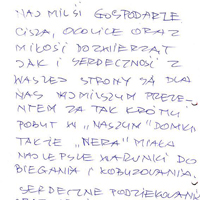 NAJMILSI GOSPODARZE
CISZA, OKOLICE ORAZ
MIŁOŚĆ DO ZWIERZĄT
JAK I SERDECZNOŚĆ Z
WASZEJ STRONY SĄ DLA
NAS NAJMILSZYM PREZE-
NTEM ZA TAK KRÓTKI
POBYT W „NASZYM" DOMKU
TAKŻE „NERA" MIAŁA
NAJLEPSZE WARUNKI DO
BIEGANIA I
SERDECZNE PODZIĘKOWANI